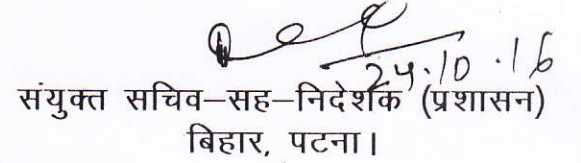 24.10.16
संयुक्त सचिव-सह-निदेशक (प्रशासन)
बिहार, पटना।